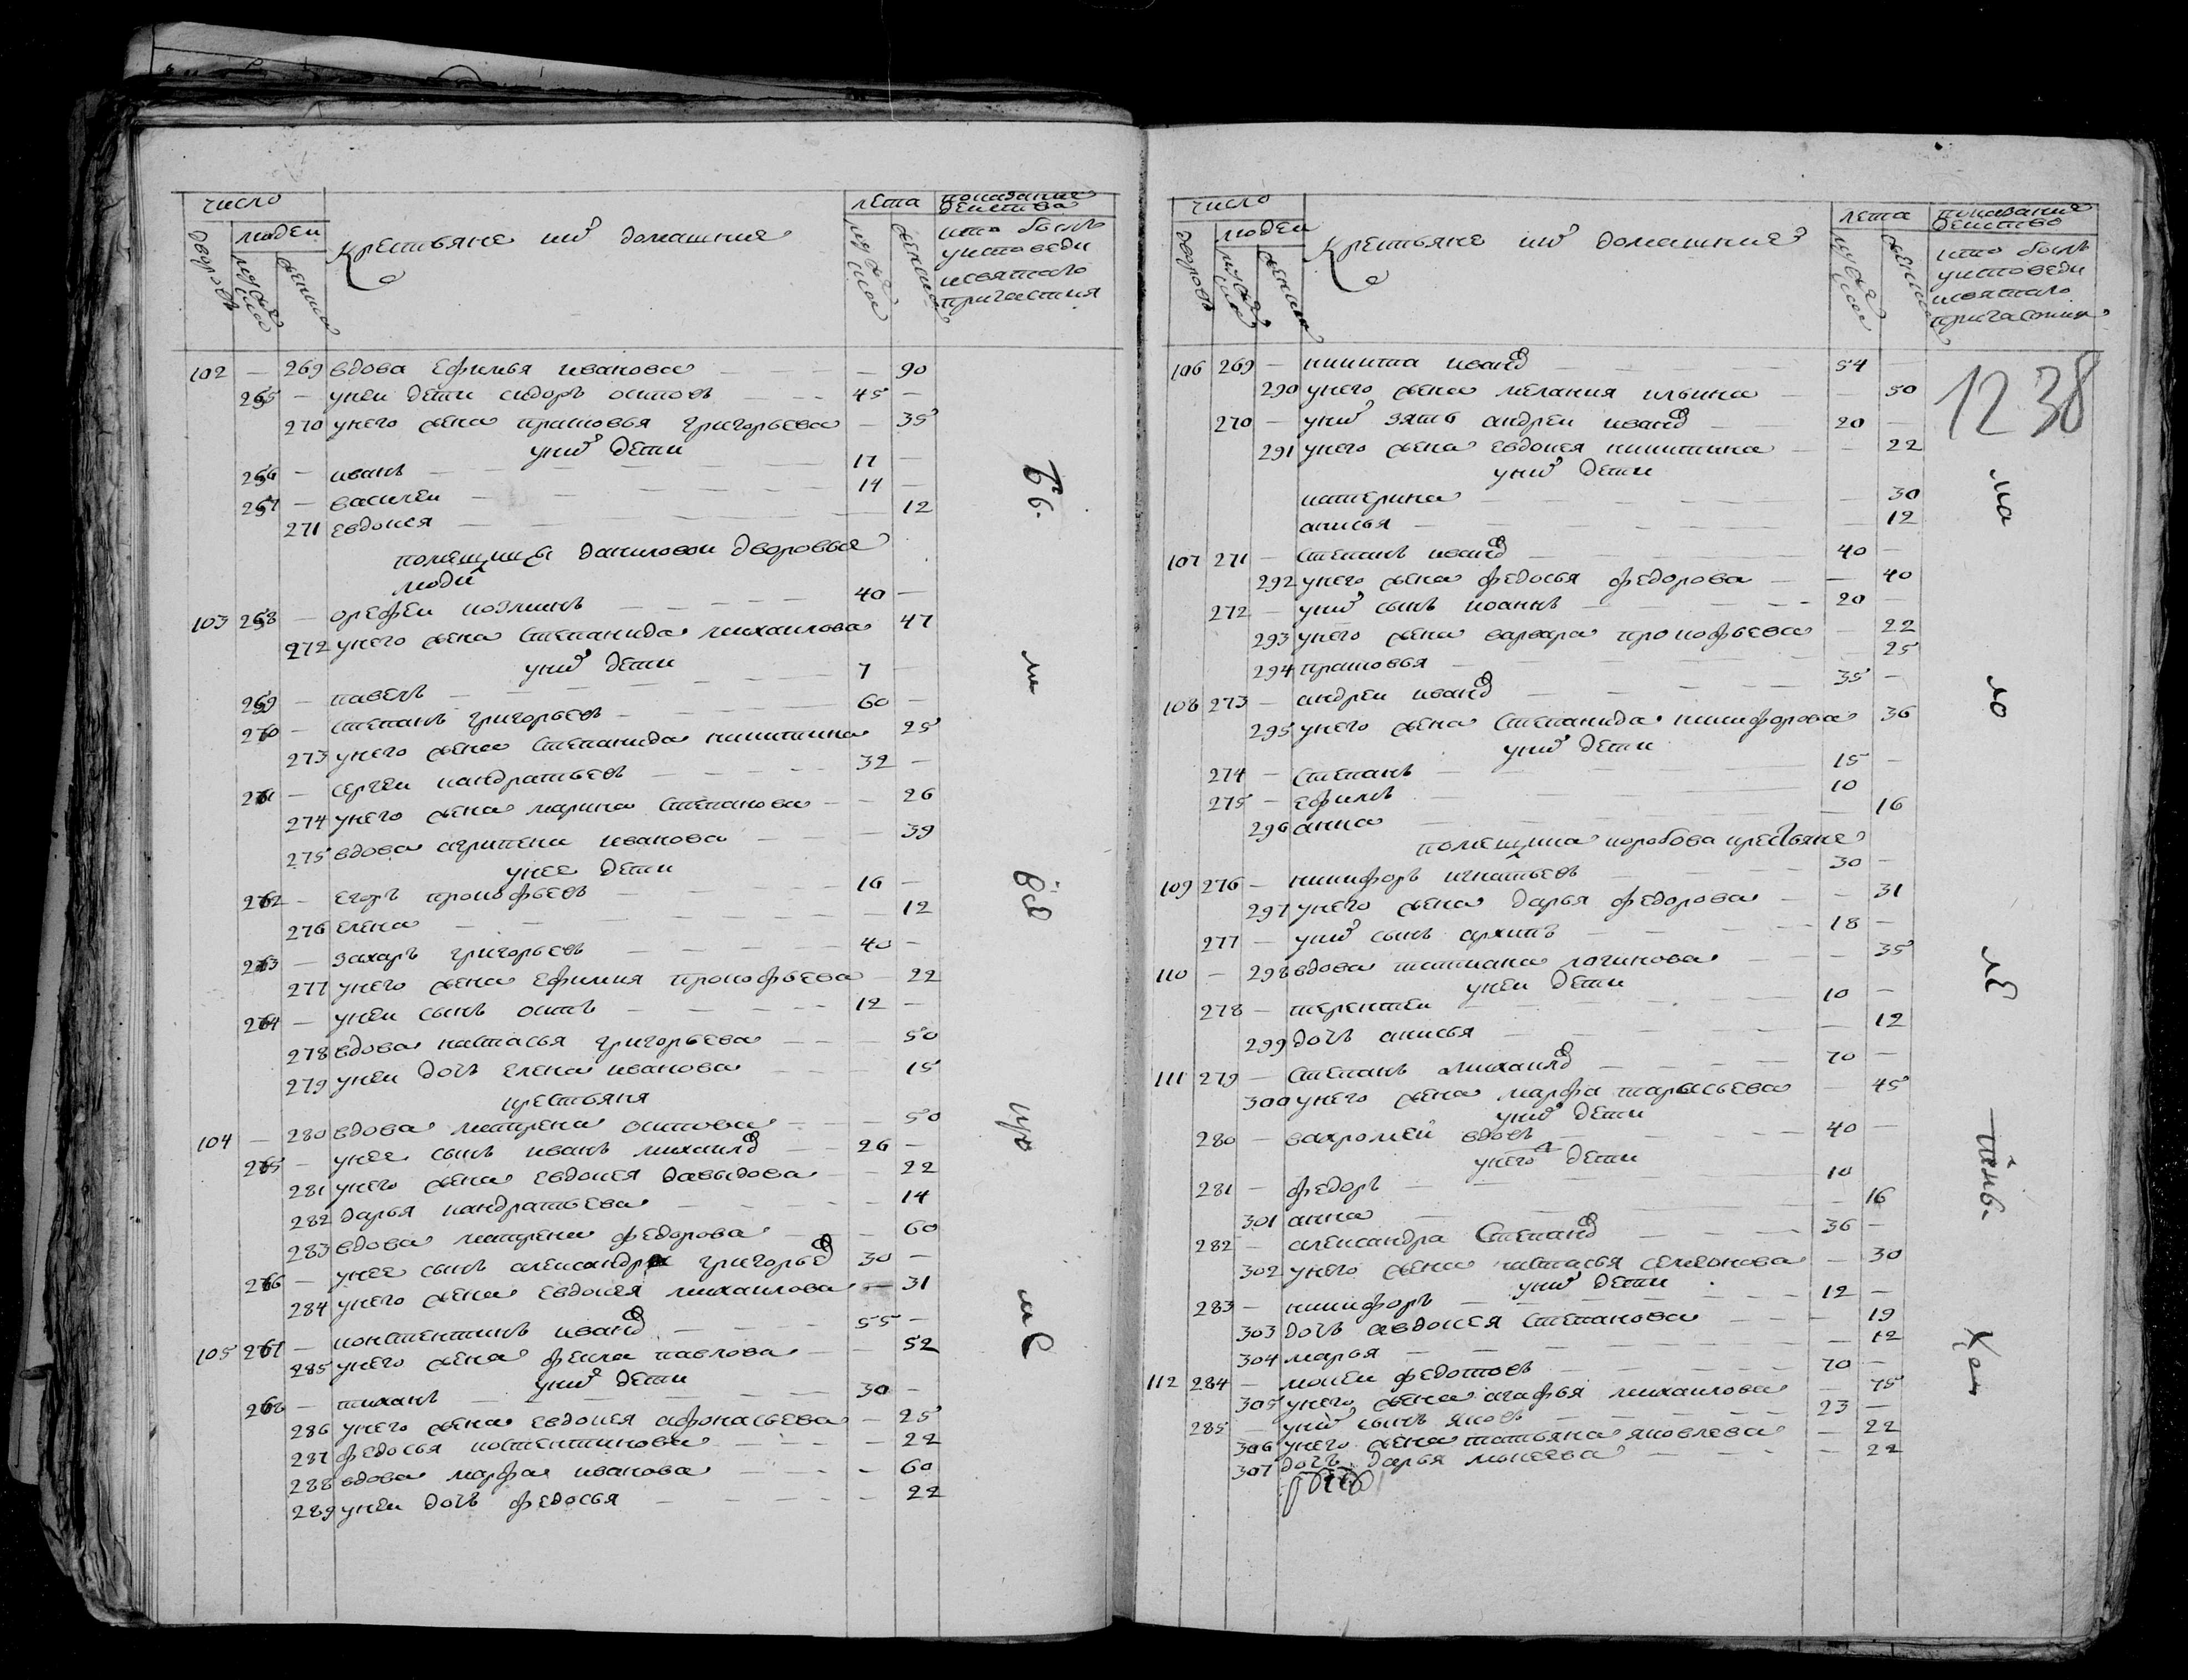 число
людеи
дворовъ
мужеска
женска
Крестьяне ихъ домашние
лета
мужеска
женска
показание действа
кто былъ
уисповеди
исвятаго
причастия
102 — 269 вдова Ефимья иванова — — 90
265 — унеи дети сидоръ осиповъ — — 45 —
270 унего жена прасковья григорьева — 35
унихъ дети
266 — иванъ — 17 —
267 — василеи — 14 —
271 евдокея — 12
помещицы даниловои дворовыя
люди
103 268 — орефеи козминъ — 40 —
272 унего жена степанида михаилова 47
унихъ дети
269 — павелъ — 7 —
270 — степанъ григорьевъ — 60 —
273 унего жена степанида никитина 25
271 — сергеи кандратьевъ — 32 —
274 унего жена марина степанова — — 26
275 вдова агрипена иванова — — 39
унее дети
272 — егоръ прокофьевъ — 16 —
276 елена — 12
273 — захаръ григорьевъ — 40 —
277 унего жена ефимия прокофьева — 22
274 — унеи сынъ осипъ — 12 —
278 вдова настасья григорьева — 50
279 унеи дочь елена иванова — 15
крестьяня
104 — 280 вдова матрена осипова — 50
275 — унее сынъ иванъ михаилов — 26 —
281 унего жена евдокея давыдова — 22
282 дарья кандратьева — 14
283 вдова матрена федорова — 60
276 — унее сынъ александра григорьев 30 —
284 унего жена евдокея михаилова — 31
105 267 — констентинъ иванов — 55 —
285 унего жена фекла павлова — 52
унихъ дети
268 — тиханъ — 30 —
286 унего жена евдокея афонасьева — 25
287 федосья костентинова — 22
288 вдова марфа иванова — 60
289 унеи дочь федосья — 22
число
людеи
дворовъ
мужеска
женска
Крестьяне ихъ домашние
лета
мужеска
женска
показание действо
кто былъ
уисповеди
исвятаго
причастия
1238
106 269 — никита иванов — 54 —
290 унего жена мелания ильина — — 50
270 — унихъ зять андреи иванов — 20 —
291 унего жена евдокея никитина — — 22
унихъ дети
катерина — 30
анисья — 12
107 271 — степанъ иванов — 40 —
292 унего жена федосья федорова — — 40
272 — унихъ сынъ иоаннъ — 20 —
293 унего жена варвара прокофьева — 22
294 прасковья — 25
108 273 — андреи иванов — 35 —
295 унего жена степанида никифорова 36
унихъ дети
274 — степанъ — 15 —
275 — ефимъ — 10
296 анна — 16
помещика коробова крестьяне
109 276 — никифоръ игнатьевъ — 30 —
297 унего жена дарья федорова — — 31
277 — унихъ сынъ архипъ — 18 —
110 — 298 вдова татиана логинова — — 35
унеи дети
278 — терентеи — 10 —
299 дочь анисья — 12
111 279 — степанъ михаилов — 70 —
300 унего жена марфа тарасьева — 45
унихъ дети
280 — вахромеи вдовъ — 40 —
унего дети
281 — федоръ — 10
301 анна — 16
282 — александра степанов — 36 —
302 унего жена настасья семенова — 30
унихъ дети
283 — никифоръ — 12 —
303 дочь авдокея степанова — 19
304 марья — 12
112 284 — мокеи федотовъ — 70 —
305 унего жена агафья михаилова — 75
285 — унихъ сынъ яковъ — 23 —
306 унего жена татьяна яковлева — 22
307 дочь дарья мокеева — 22